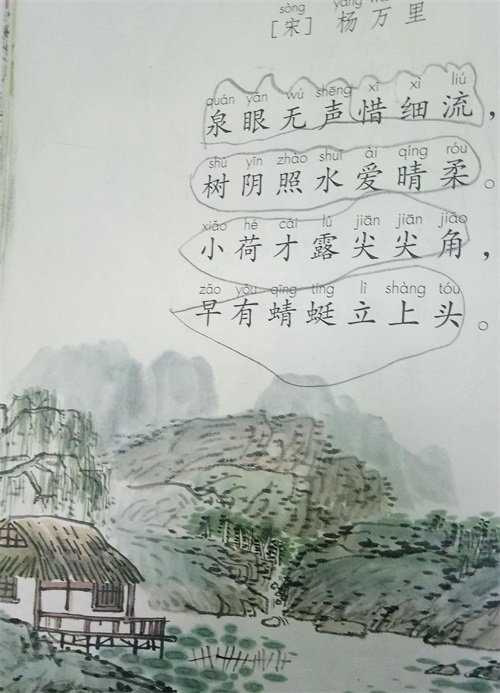 sòng yáng
[宋] 杨万里
quán yǎn wú shēng xī xì liú
泉眼无声惜细流，
shù yīn zhào shuǐ ài qíng róu
树阴照水爱晴柔。
xiǎo hé cái lù jiān jiān jiǎo
小荷才露尖尖角，
zǎo yǒu qīng tíng lì shàng tóu
早有蜻蜓立上头。